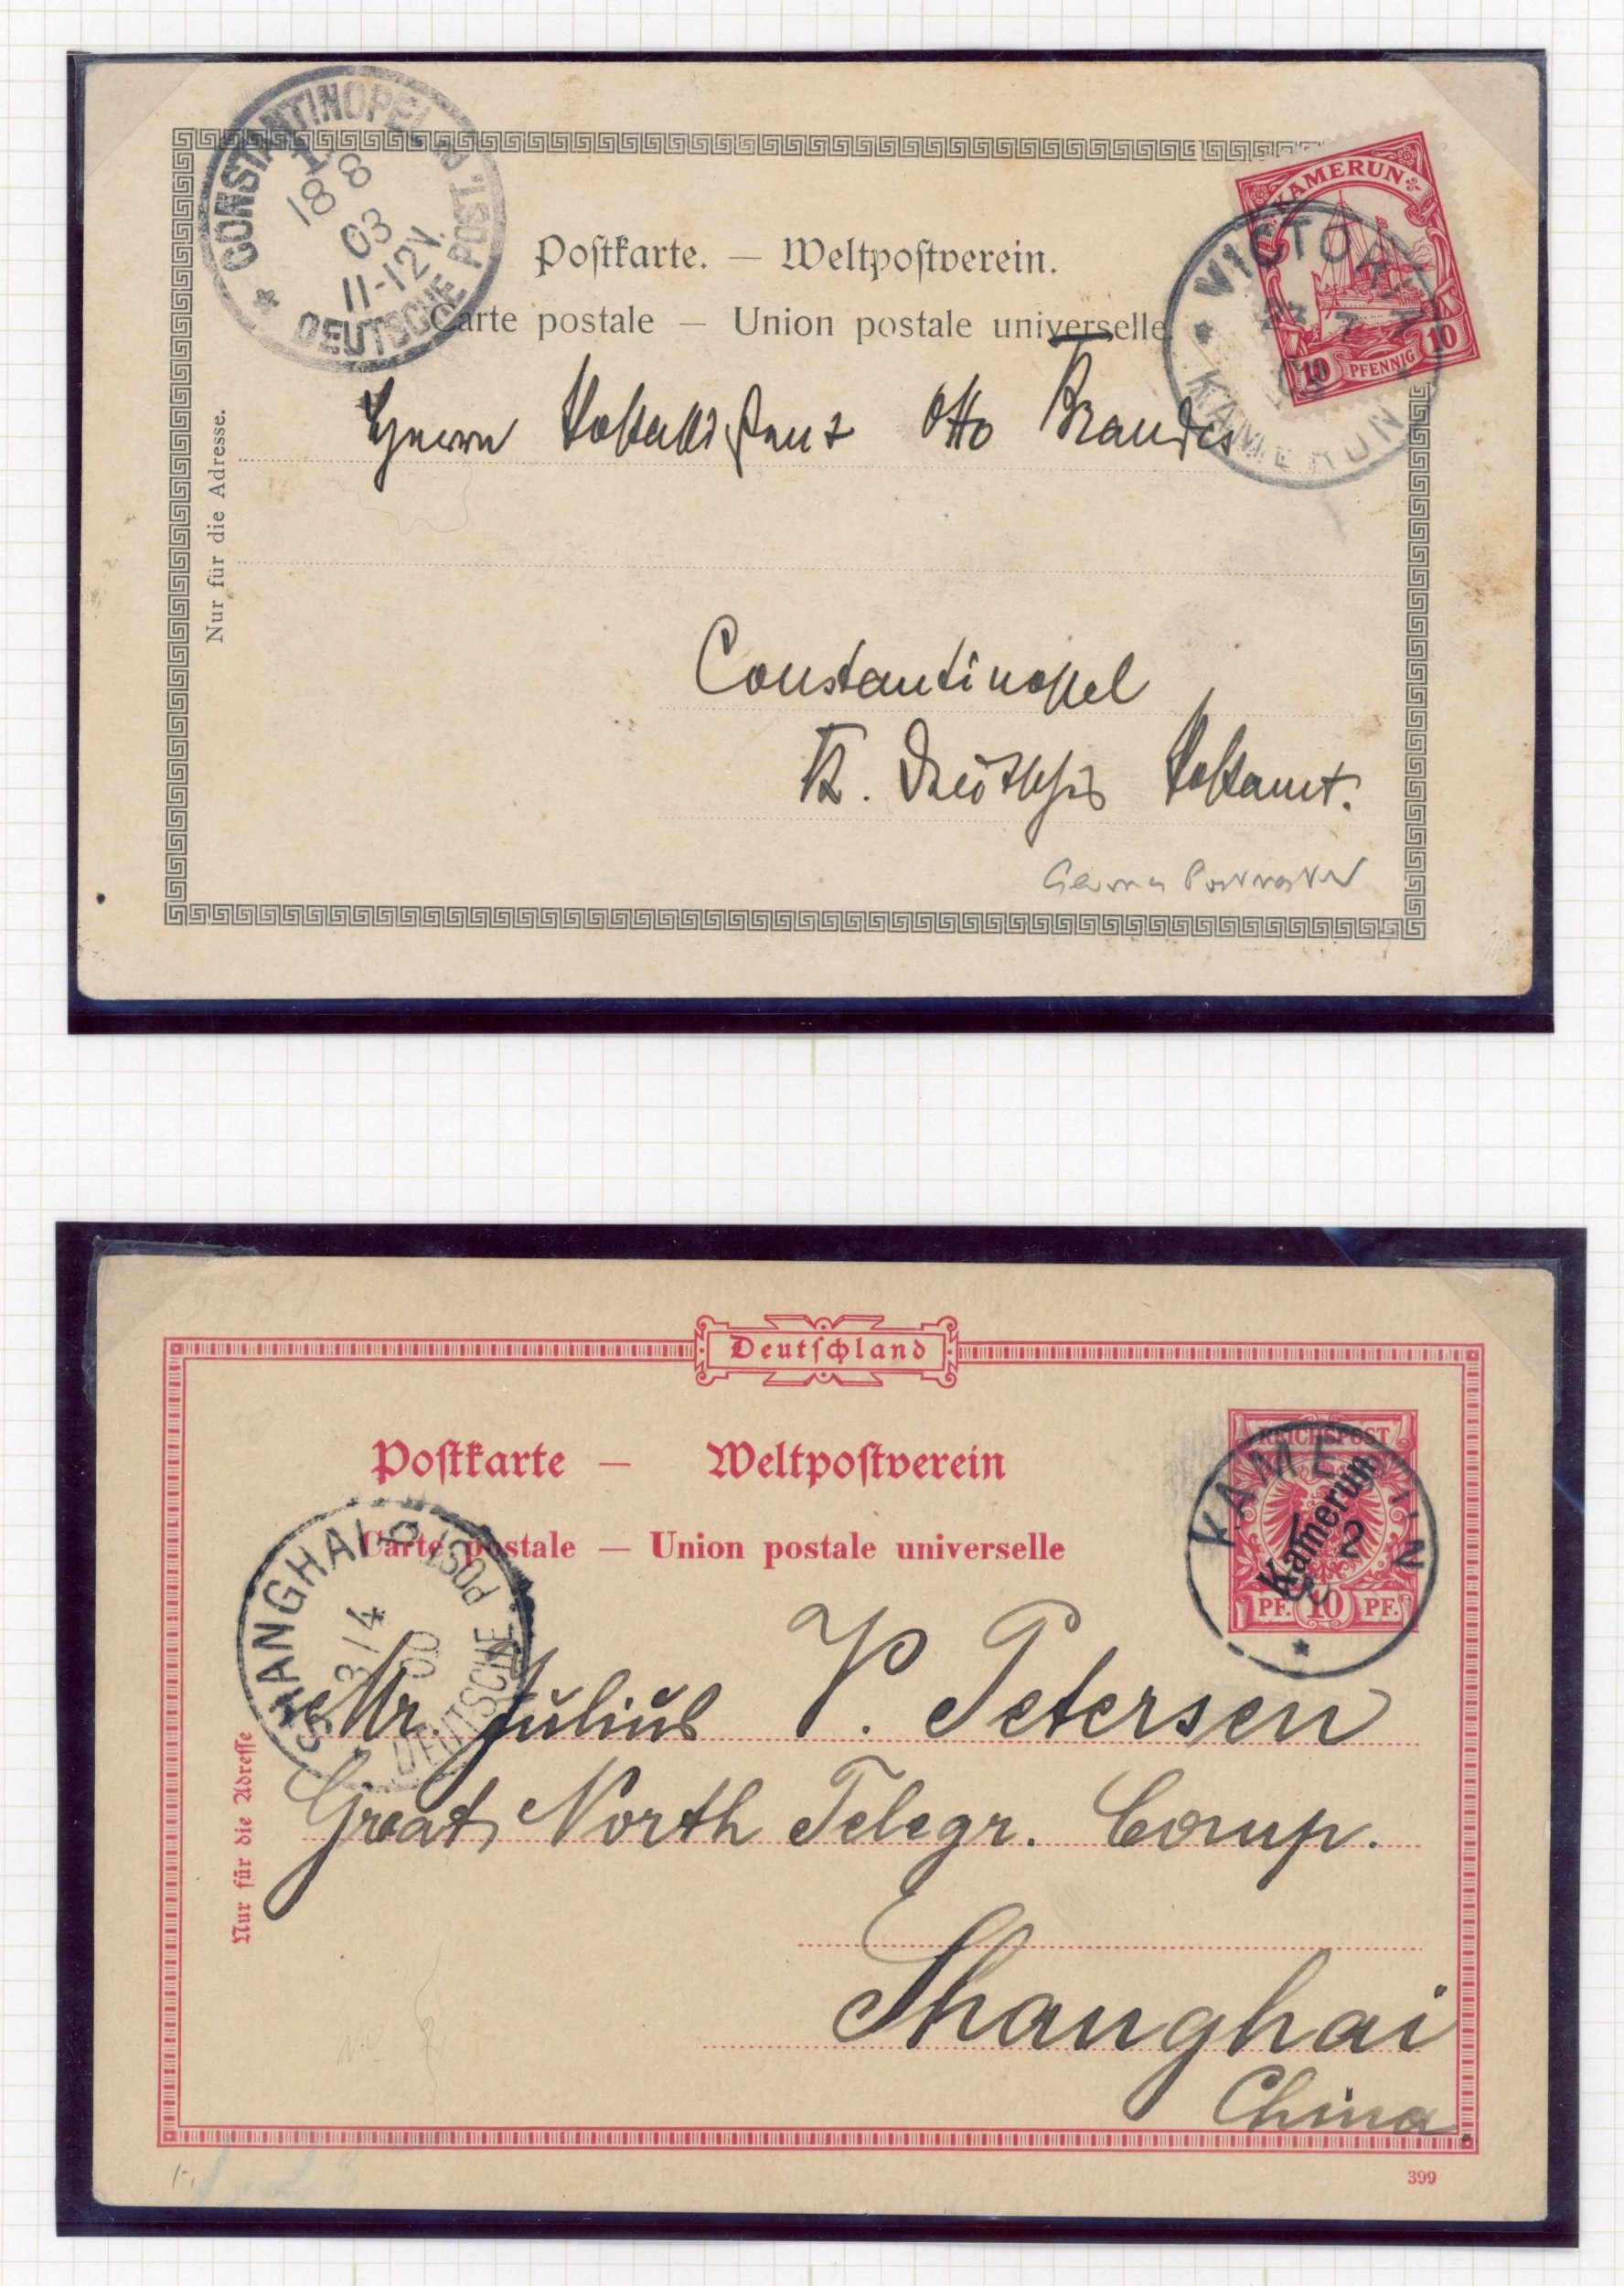 CONSTANTINOPEL 1
18 8
03
11-12V.
DEUTSCHE POST.
KAMERUN
10 PFENNIG 10
VICTORIA
7
03
KAMERUN
Postkarte. — Weltpostverein.
Carte postale — Union postale universelle
Nur für die Adresse.
Herrn Postassistent Otto Brandes
Constantinopel
K. Deutsches Postamt.
German Postmaster
Deutschland
Postkarte — Weltpostverein
Carte postale — Union postale universelle
REICHSPOST
Kamerun
PF. 10 PF.
KAMERUN
2
SHANGHAI
3/4
00
DEUTSCHE POST
Mr. Julius V. Petersen
Great North Telegr. Comp.
Shanghai
China
Nur für die Adresse
399